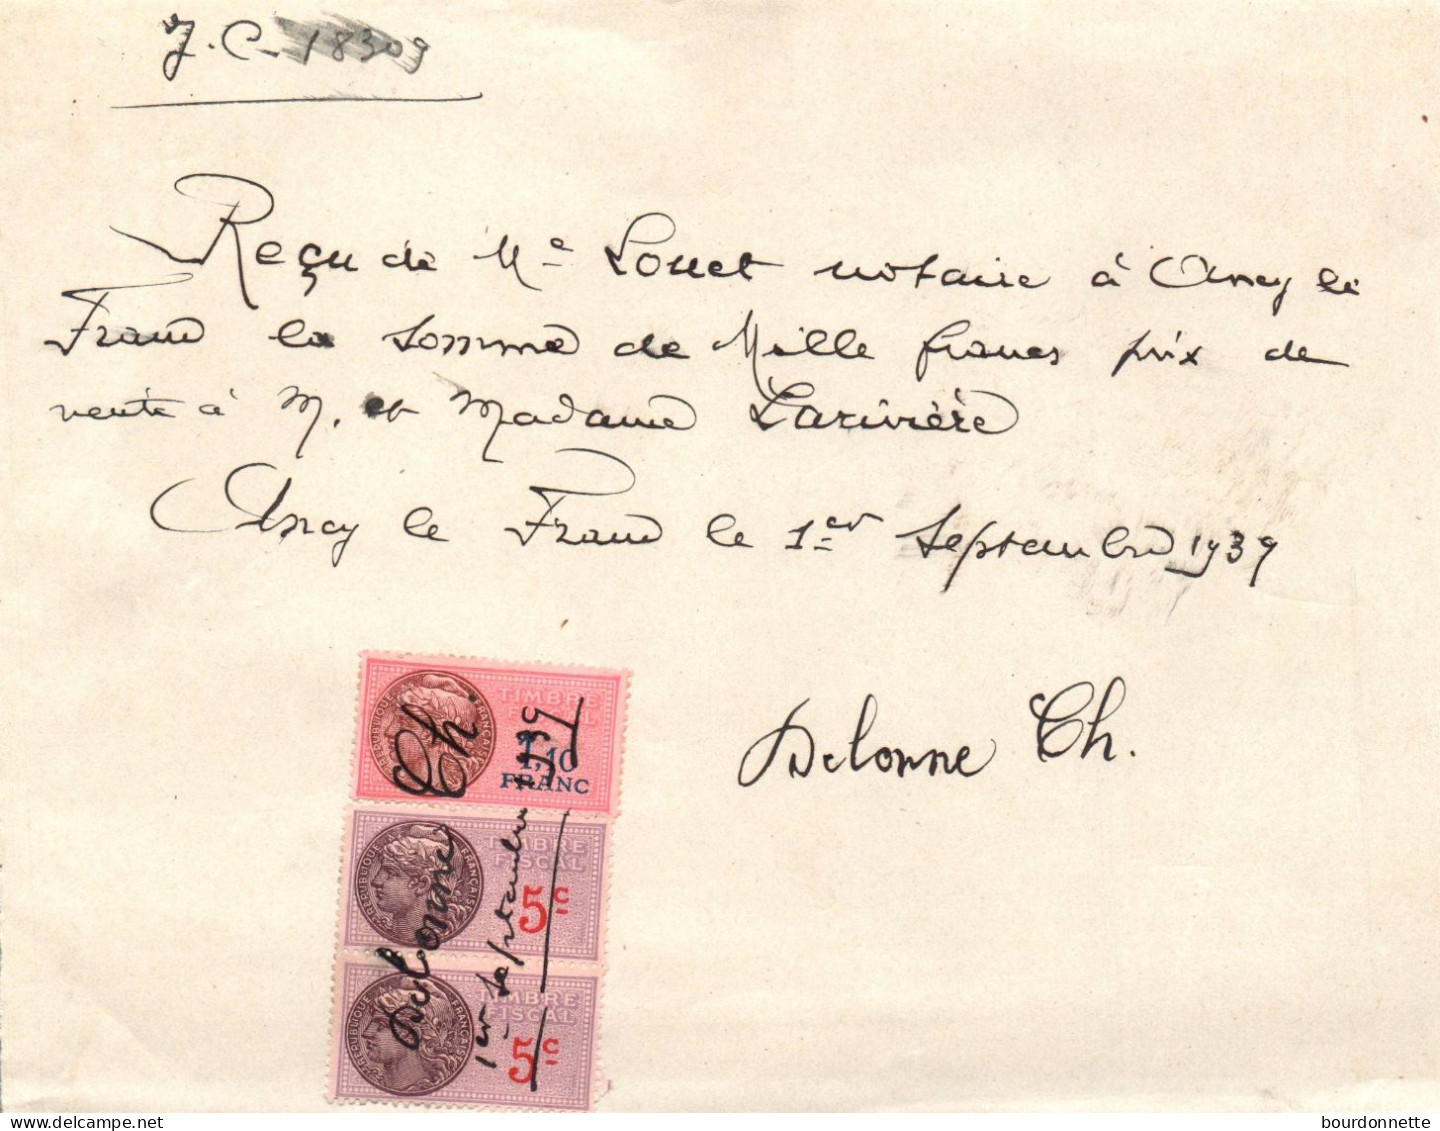 J.C. 18309
Reçu de Me Louet notaire à Ancy le
Franc la somme de Mille francs prix de
vente à M. et Madame Larivière
Ancy le Franc le 1er Septembre 1939
Delonne Ch.
TIMBRE
FISCAL
1,10
FRANC
REPUBLIQUE FRANÇAISE
Delonne Ch.
1er Septembre 1939
TIMBRE
FISCAL
5c
REPUBLIQUE FRANÇAISE
TIMBRE
FISCAL
5c
REPUBLIQUE FRANÇAISE
bourdonnette